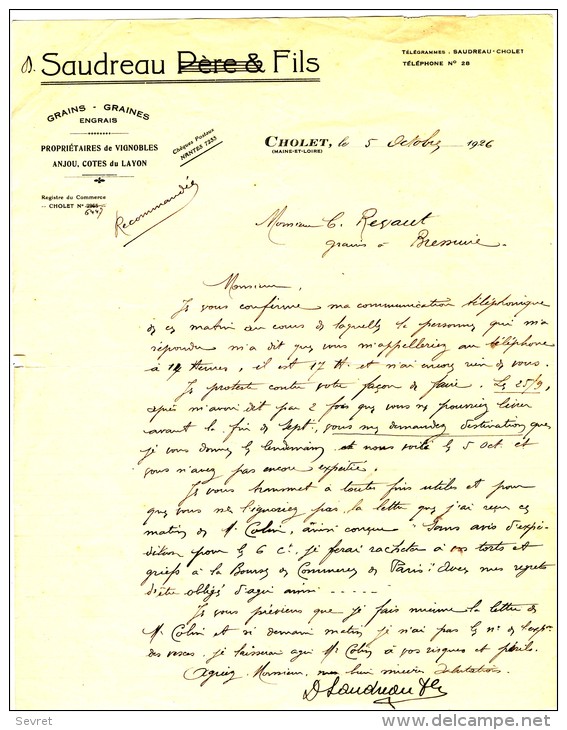 D. Saudreau Père & Fils
TÉLÉGRAMMES. SAUDREAU-CHOLET
TÉLÉPHONE Nº 28
GRAINS - GRAINES
ENGRAIS
PROPRIÉTAIRES de VIGNOBLES
ANJOU, COTES du LAYON
Chèques Postaux
NANTES 7253
Registre du Commerce
CHOLET Nº
6447
Recommandée
CHOLET, le 5 Octobre 1926
(MAINE-ET-LOIRE)
Monsieur C. Regaut
grains à Bressuire.
Monsieur,
Je vous confirme ma communication téléphonique
de ce matin au cours de laquelle la personne qui m'a
répondu m'a dit que vous m'appelleriez au téléphone
à 14 heures, il est 17 H. et n'ai encore rien de vous.
Je proteste contre votre façon de faire. Le 25/9,
après m'avoir dit par 2 fois que vous ne pourriez livrer
avant la fin de Sept., vous me demandez destination que
je vous donne le lendemain et nous voilà le 5 Oct. et
vous n'avez pas encore expédié.
Je vous transmet à toutes fins utiles et pour
que vous ne l'ignoriez pas la lettre que j'ai reçue ce
matin de M. Colin, ainsi conçue "Sans avis d'expé-
dition pour le 6 Ct, je ferai racheter à vos torts et
griefs à la Bourse de Commerce de Paris". Avec mes regrets
d'être obligé d'agir ainsi - - - - -
Je vous préviens que je fais mienne la lettre de
M. Colin et si demain matin je n'ai pas le nº de l'expon
des vesces, je laisserai agir M. Colin à vos risques et périls.
Agréez, Monsieur, mes bien sincères salutations.
D Saudreau fils
Sevret
www.delcampe.net